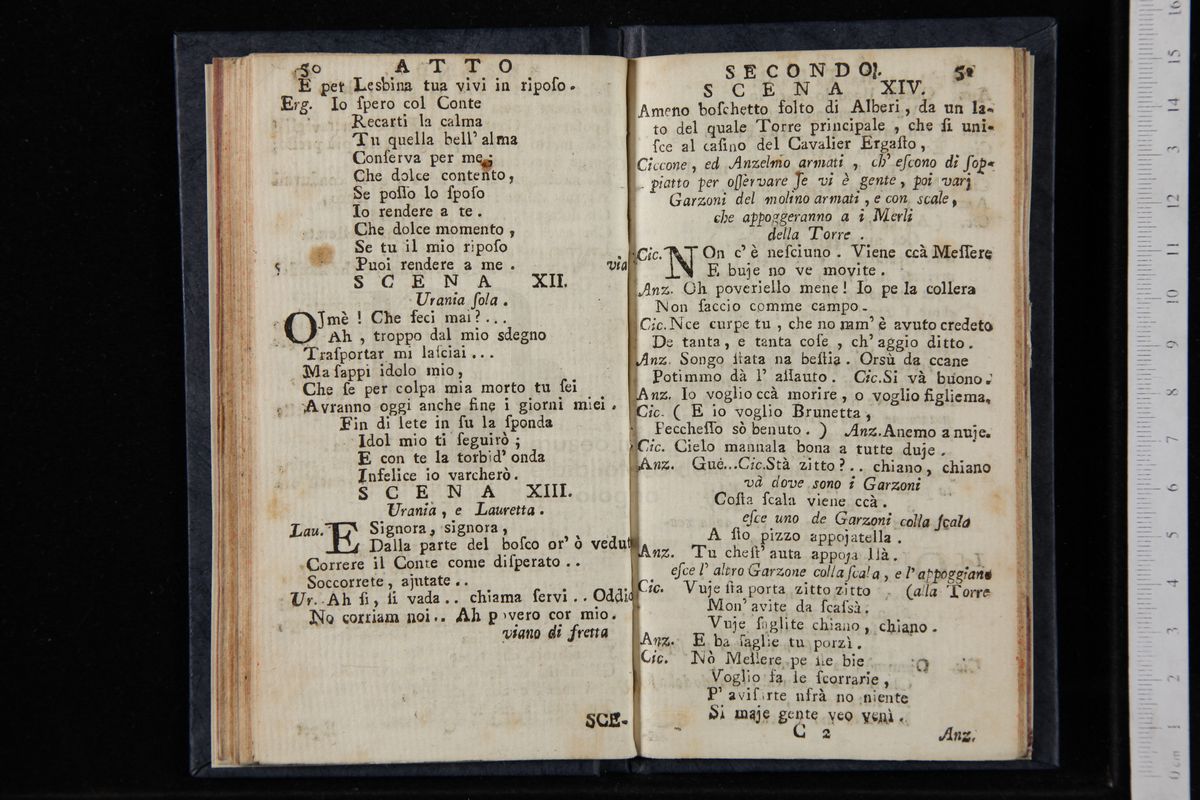 50 ATTO
E per Lesbina tua vivi in ripoſo.
Erg. Io ſpero col Conte
Recarti la calma
Tu quella bell' alma
Conſerva per me;
Che dolce contento,
Se poſſo lo ſpoſo
Io rendere a te.
Che dolce momento,
Se tu il mio ripoſo
Puoi rendere a me. via
SCENA XII.
Urania ſola.
OJmè! Che feci mai?...
Ah, troppo dal mio sdegno
Traſportar mi laſciai...
Ma ſappi idolo mio,
Che ſe per colpa mia morto tu ſei
Avranno oggi anche fine i giorni miei.
Fin di lete in ſu la ſponda
Idol mio ti ſeguirò;
E con te la torbid' onda
Infelice io varcherò.
SCENA XIII.
Urania, e Lauretta.
Lau. E Signora, signora,
Dalla parte del boſco or' ò vedut
Correre il Conte come diſperato..
Soccorrete, ajutate..
Ur. Ah ſi, ſi vada.. chiama ſervi.. Oddio
No corriam noi.. Ah povero cor mio.
viano di fretta
SCE-
SECONDO. 51
SCENA XIV.
Ameno boſchetto folto di Alberi, da un la-
to del quale Torre principale, che ſi uni-
ſce al caſino del Cavalier Ergaſto,
Ciccone, ed Anzelmo armati, ch' eſcono di ſop-
piatto per oſſervare ſe vi è gente, poi varj
Garzoni del molino armati, e con scale,
che appoggeranno a i Merli
della Torre.
Cic. NOn c' è neſciuno. Viene ccà Meſſere
E buje no ve movite.
Anz. Oh poveriello mene! Io pe la collera
Non faccio comme campo.
Cic. Nce curpe tu, che no mm' è avuto credeto
De tanta, e tanta coſe, ch' aggio ditto.
Anz. Songo ſtata na beſtia. Orsù da ccane
Potimmo dà l' aſſauto. Cic. Si và buono.
Anz. Io voglio ccà morire, o voglio figliema.
Cic. ( E io voglio Brunetta,
Peccheſſo sò benuto. ) Anz. Anemo a nuje.
Cic. Cielo mannala bona a tutte duje.
Anz. Gué... Cic. Stà zitto?.. chiano, chiano
và dove sono i Garzoni
Coſta ſcala viene ccà.
eſce uno de Garzoni colla ſcala
A ſto pizzo appojatella.
Anz. Tu cheſt' auta appoja llà.
eſce l' altro Garzone colla ſcala, e l' appoggiano
Cic. Vuje ſta porta zitto zitto (alla Torre
Mon' avite da ſcaſsà.
Vuje ſaglite chiano, chiano.
Anz. E ba ſaglie tu porzì.
Cic. Nò Meſſere pe ſte bie
Voglio fa le ſcorrarie,
P' aviſarte nfrà no niente
Si maje gente veo venì.
C 2 Anz.